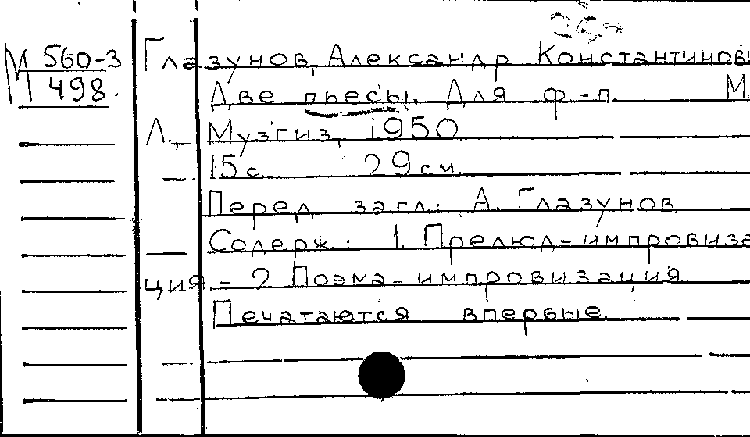 М 560-3
498.
Глазунов, Александр Константинови
Две пьесы. Для ф-п. М.
Л., Музгиз, 1950
15 с. 29 см.
Перед загл.: А. Глазунов
Содерж.: 1. Прелюд-импровиза
ция - 2 Поэма-импровизация
Печатаются впервые.